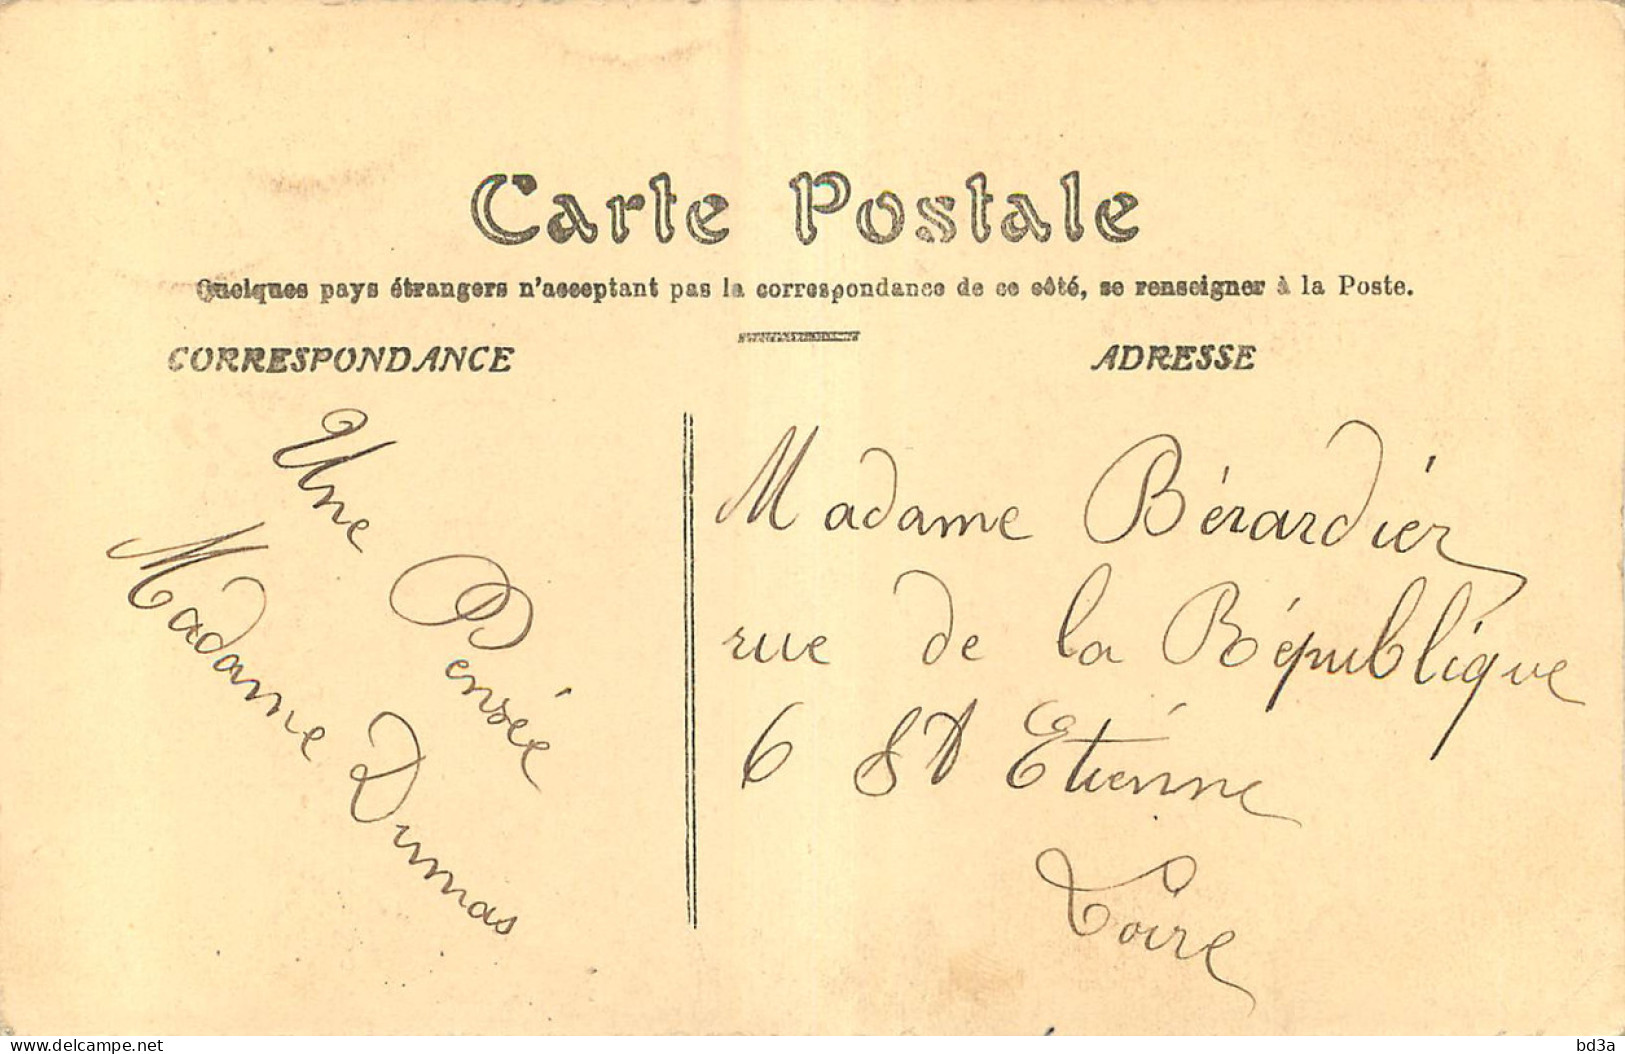 Carte Postale
Quelques pays étrangers n'acceptant pas la correspondance de ce côté, se renseigner à la Poste.
CORRESPONDANCE
ADRESSE
Une Pensée
Madame Dumas
Madame Bérardier
rue de la République
6 St Etiénne
Loire
delcampe.net
bd3a